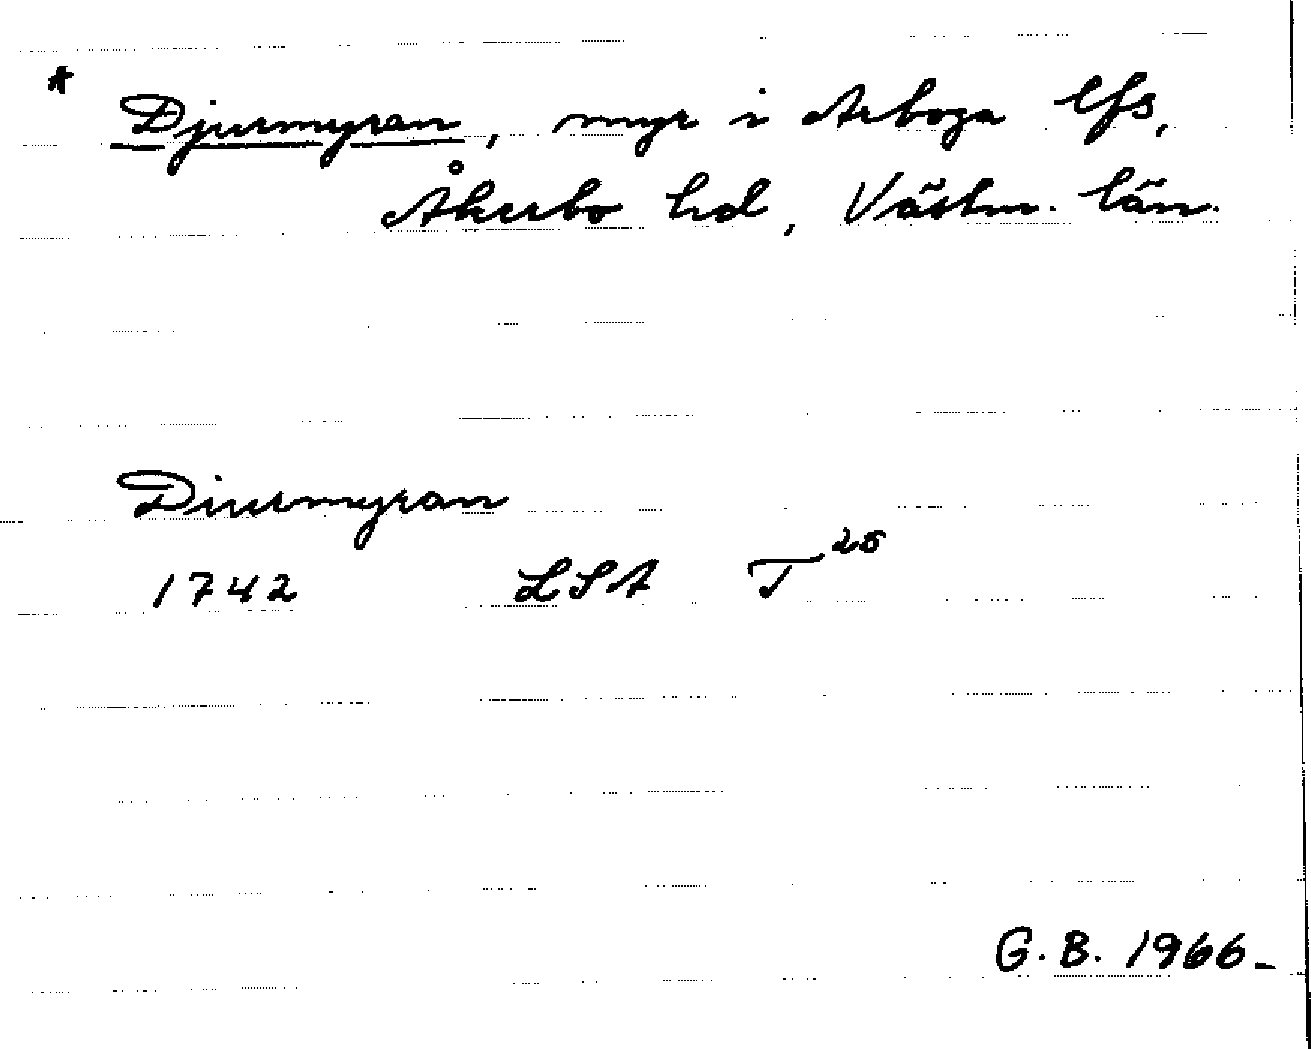 * Djurmyran, myr i Arboga lfs,
Åkerbo hd, Västm. län.
Diurmyran
1742 LSA T²⁵
G.B. 1966-